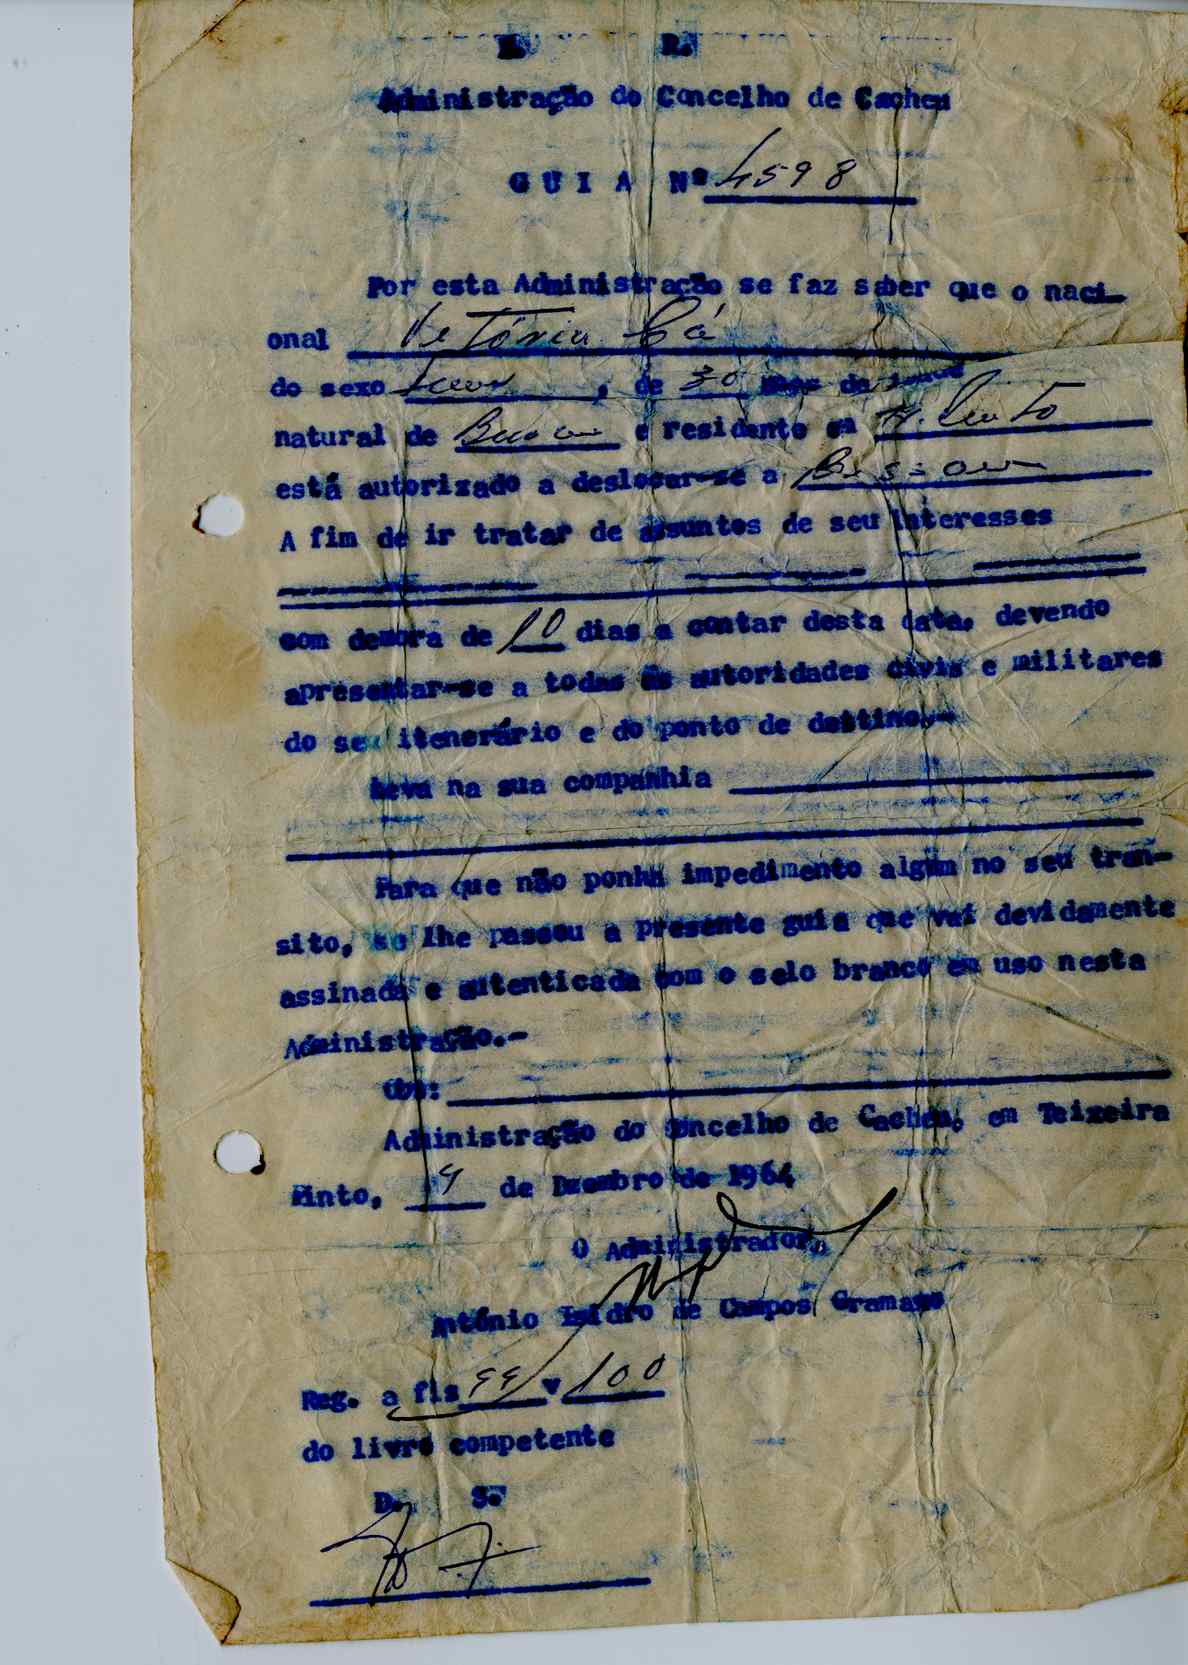 R.
Administração do Concelho de Cacheu
GUIA Nº 4598
Por esta Administração se faz saber que o naci-
onal Vetónia Cá
do sexo , de 30 anos de idade
natural de e residente em T. Pinto
está autorizado a deslocar-se a Bissau
A fim de ir tratar de assuntos de seu interesses
com demora de 10 dias a contar desta data, devendo
apresentar-se a todas as autoridades civis e militares
do seu itenerário e do ponto de destino.-
Leva na sua companhia
Para que não ponha impedimento algum no seu tran-
sito, se lhe passou a presente guia que vai devidamente
assinada e autenticada com o selo branco em uso nesta
Administração.-
Obs:
Administração do Concelho de Cacheu, em Teixeira
Pinto, 9 de Dzembro de 1964
O Administrador,
António Isidro de Campos Gramaxo
Reg. a fls 99 v 100
do livro competente
D. S.